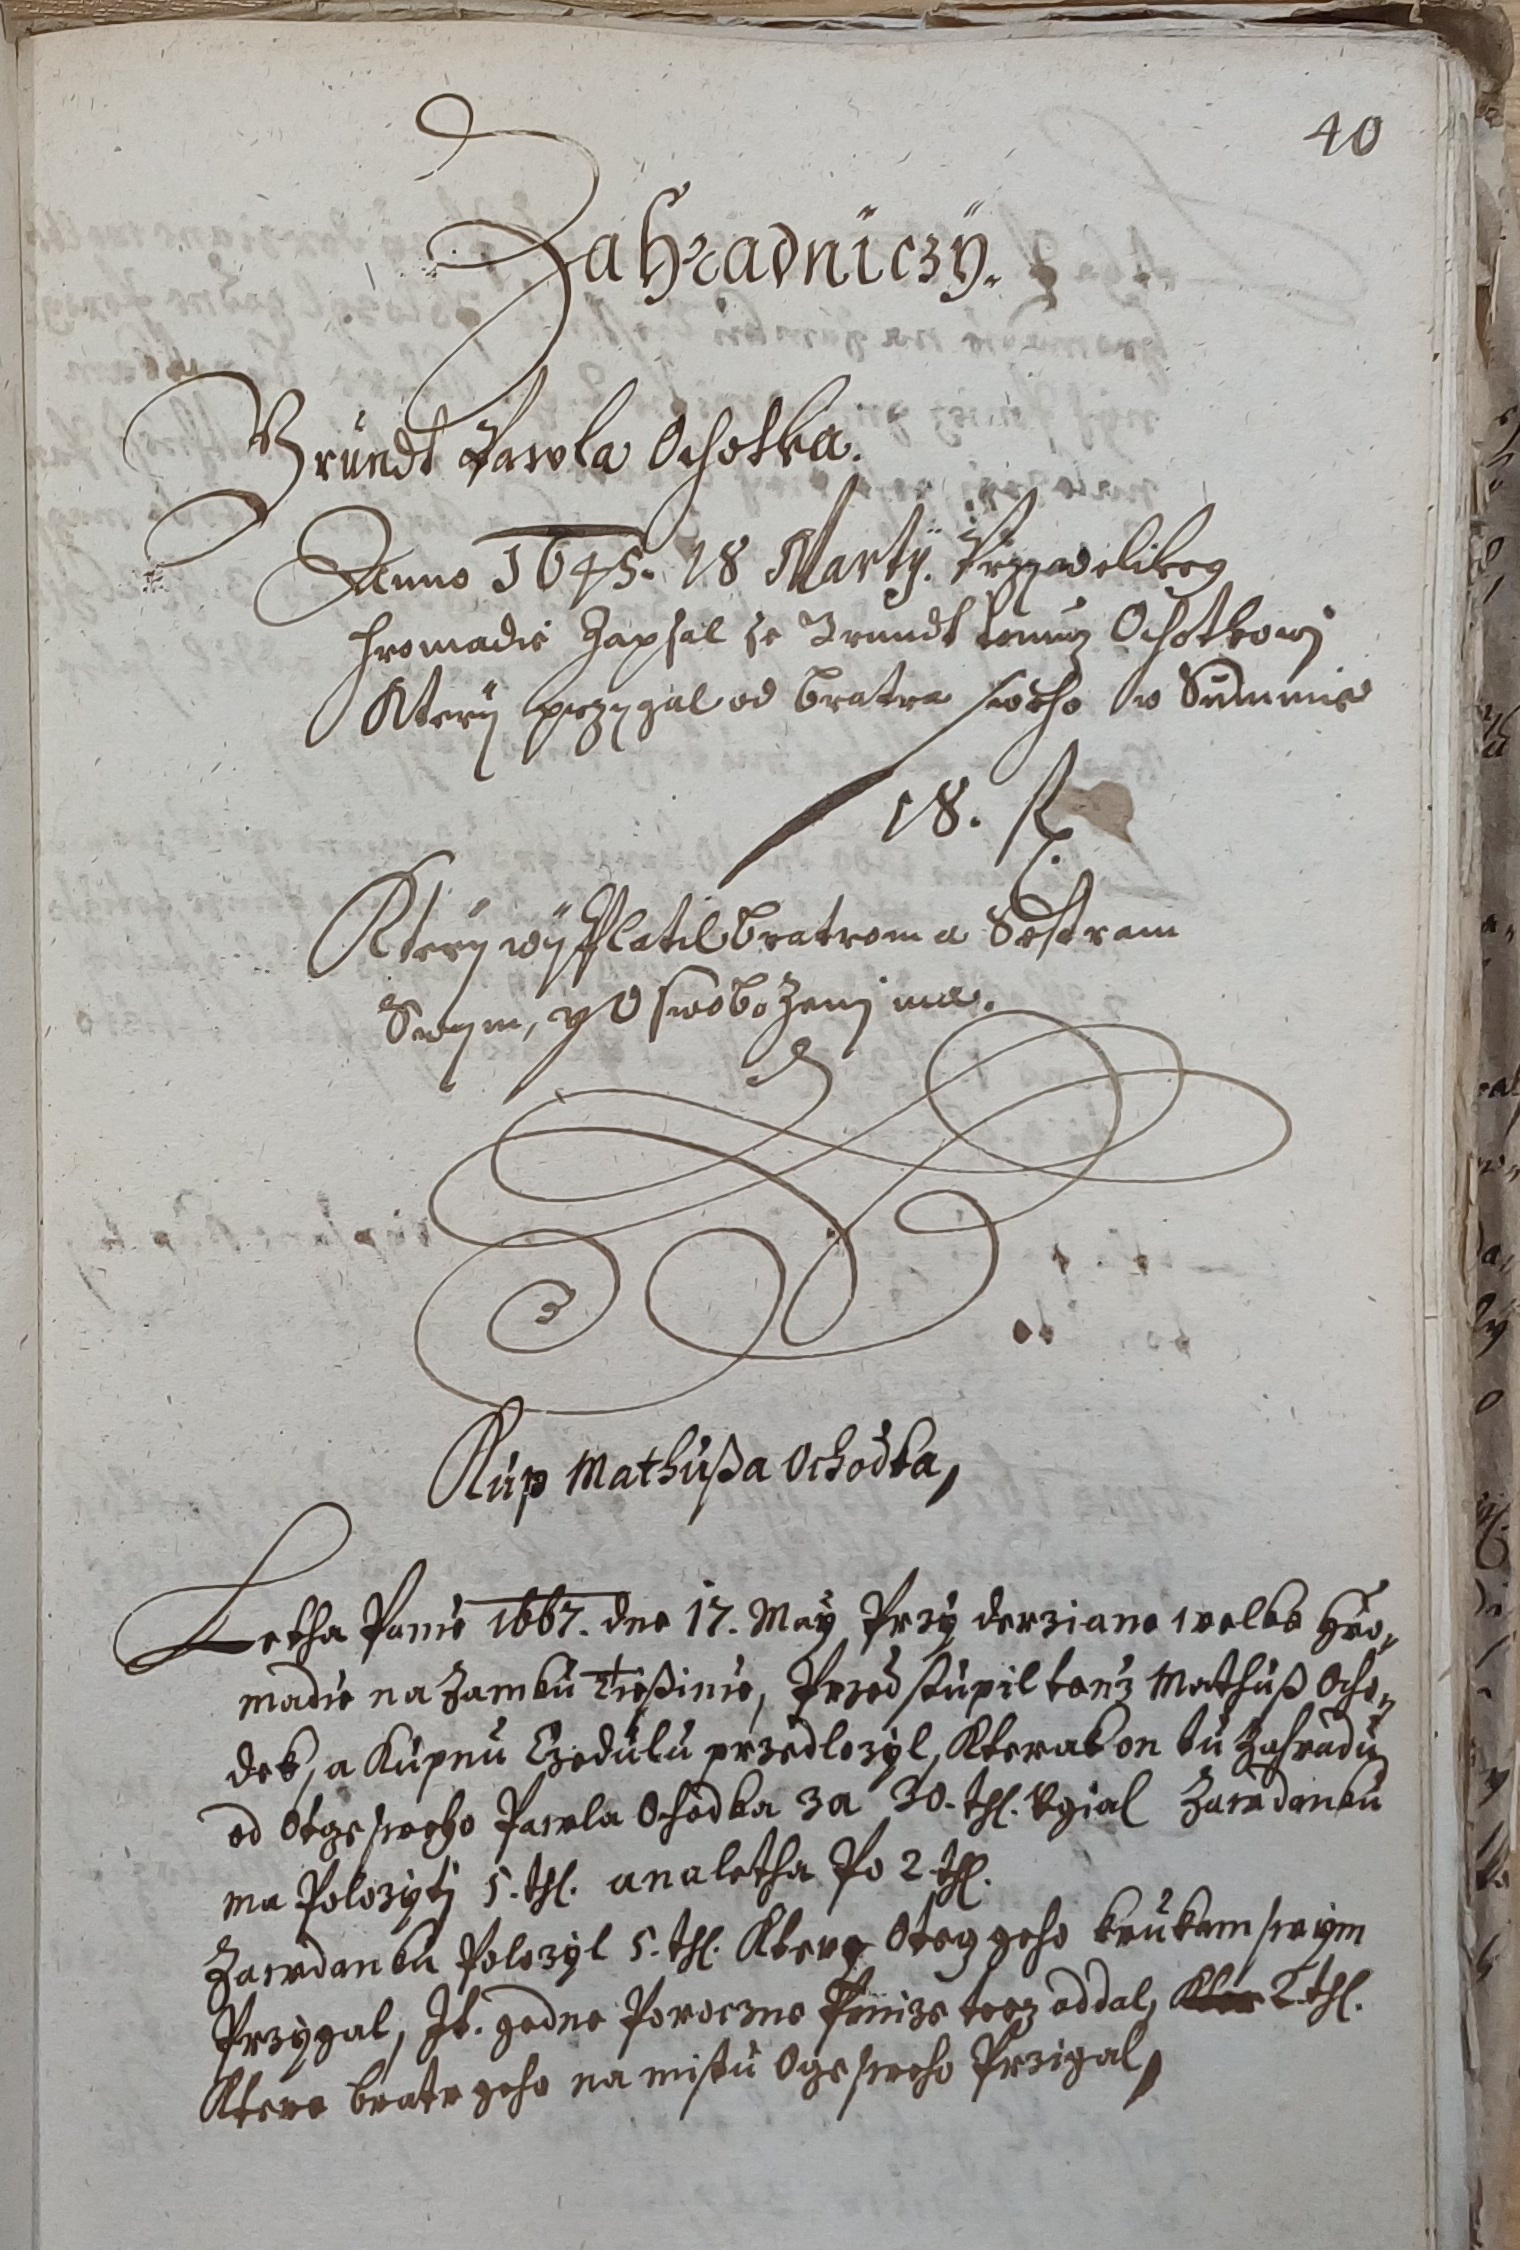 40
Zahradniczÿ.
Grundt Pawla Ochotka.
Anno 1645. 18 Martÿ. Przÿ welikeg
hromadie Zapsal se Grundt temuz Ochotkowj
Kterÿ przygal od bratra sweho w Summie
18. R.
Kterÿ wÿplatil bratrom a Sestram
Swym, y Oswobozenj ma.
Kup Mathußa Ochodka,
Letha Panie 1667. dne 17. Maÿ Przÿ derziane welke Hro,
madie na Zamku Tießinie, Przedstupil tenz Mathuß Ocho,
dek, a Kupnu Czedulu przedlozÿl, Kterak on tu Zahradu
od Otge sweho Pawla Ochodka za 30. thl. Ugial Zawdanku
ma Polozÿtj 5. thl. a na letha Po 2 thl.
Zawdanku Polozÿl 5. thl. Ktere Oteg geho k rukam swÿm
Przÿgal, It. gedne Poroczne Penize tez oddal, 2 thl.
Ktere bratr geho na mistu Oge sweho Przigal,